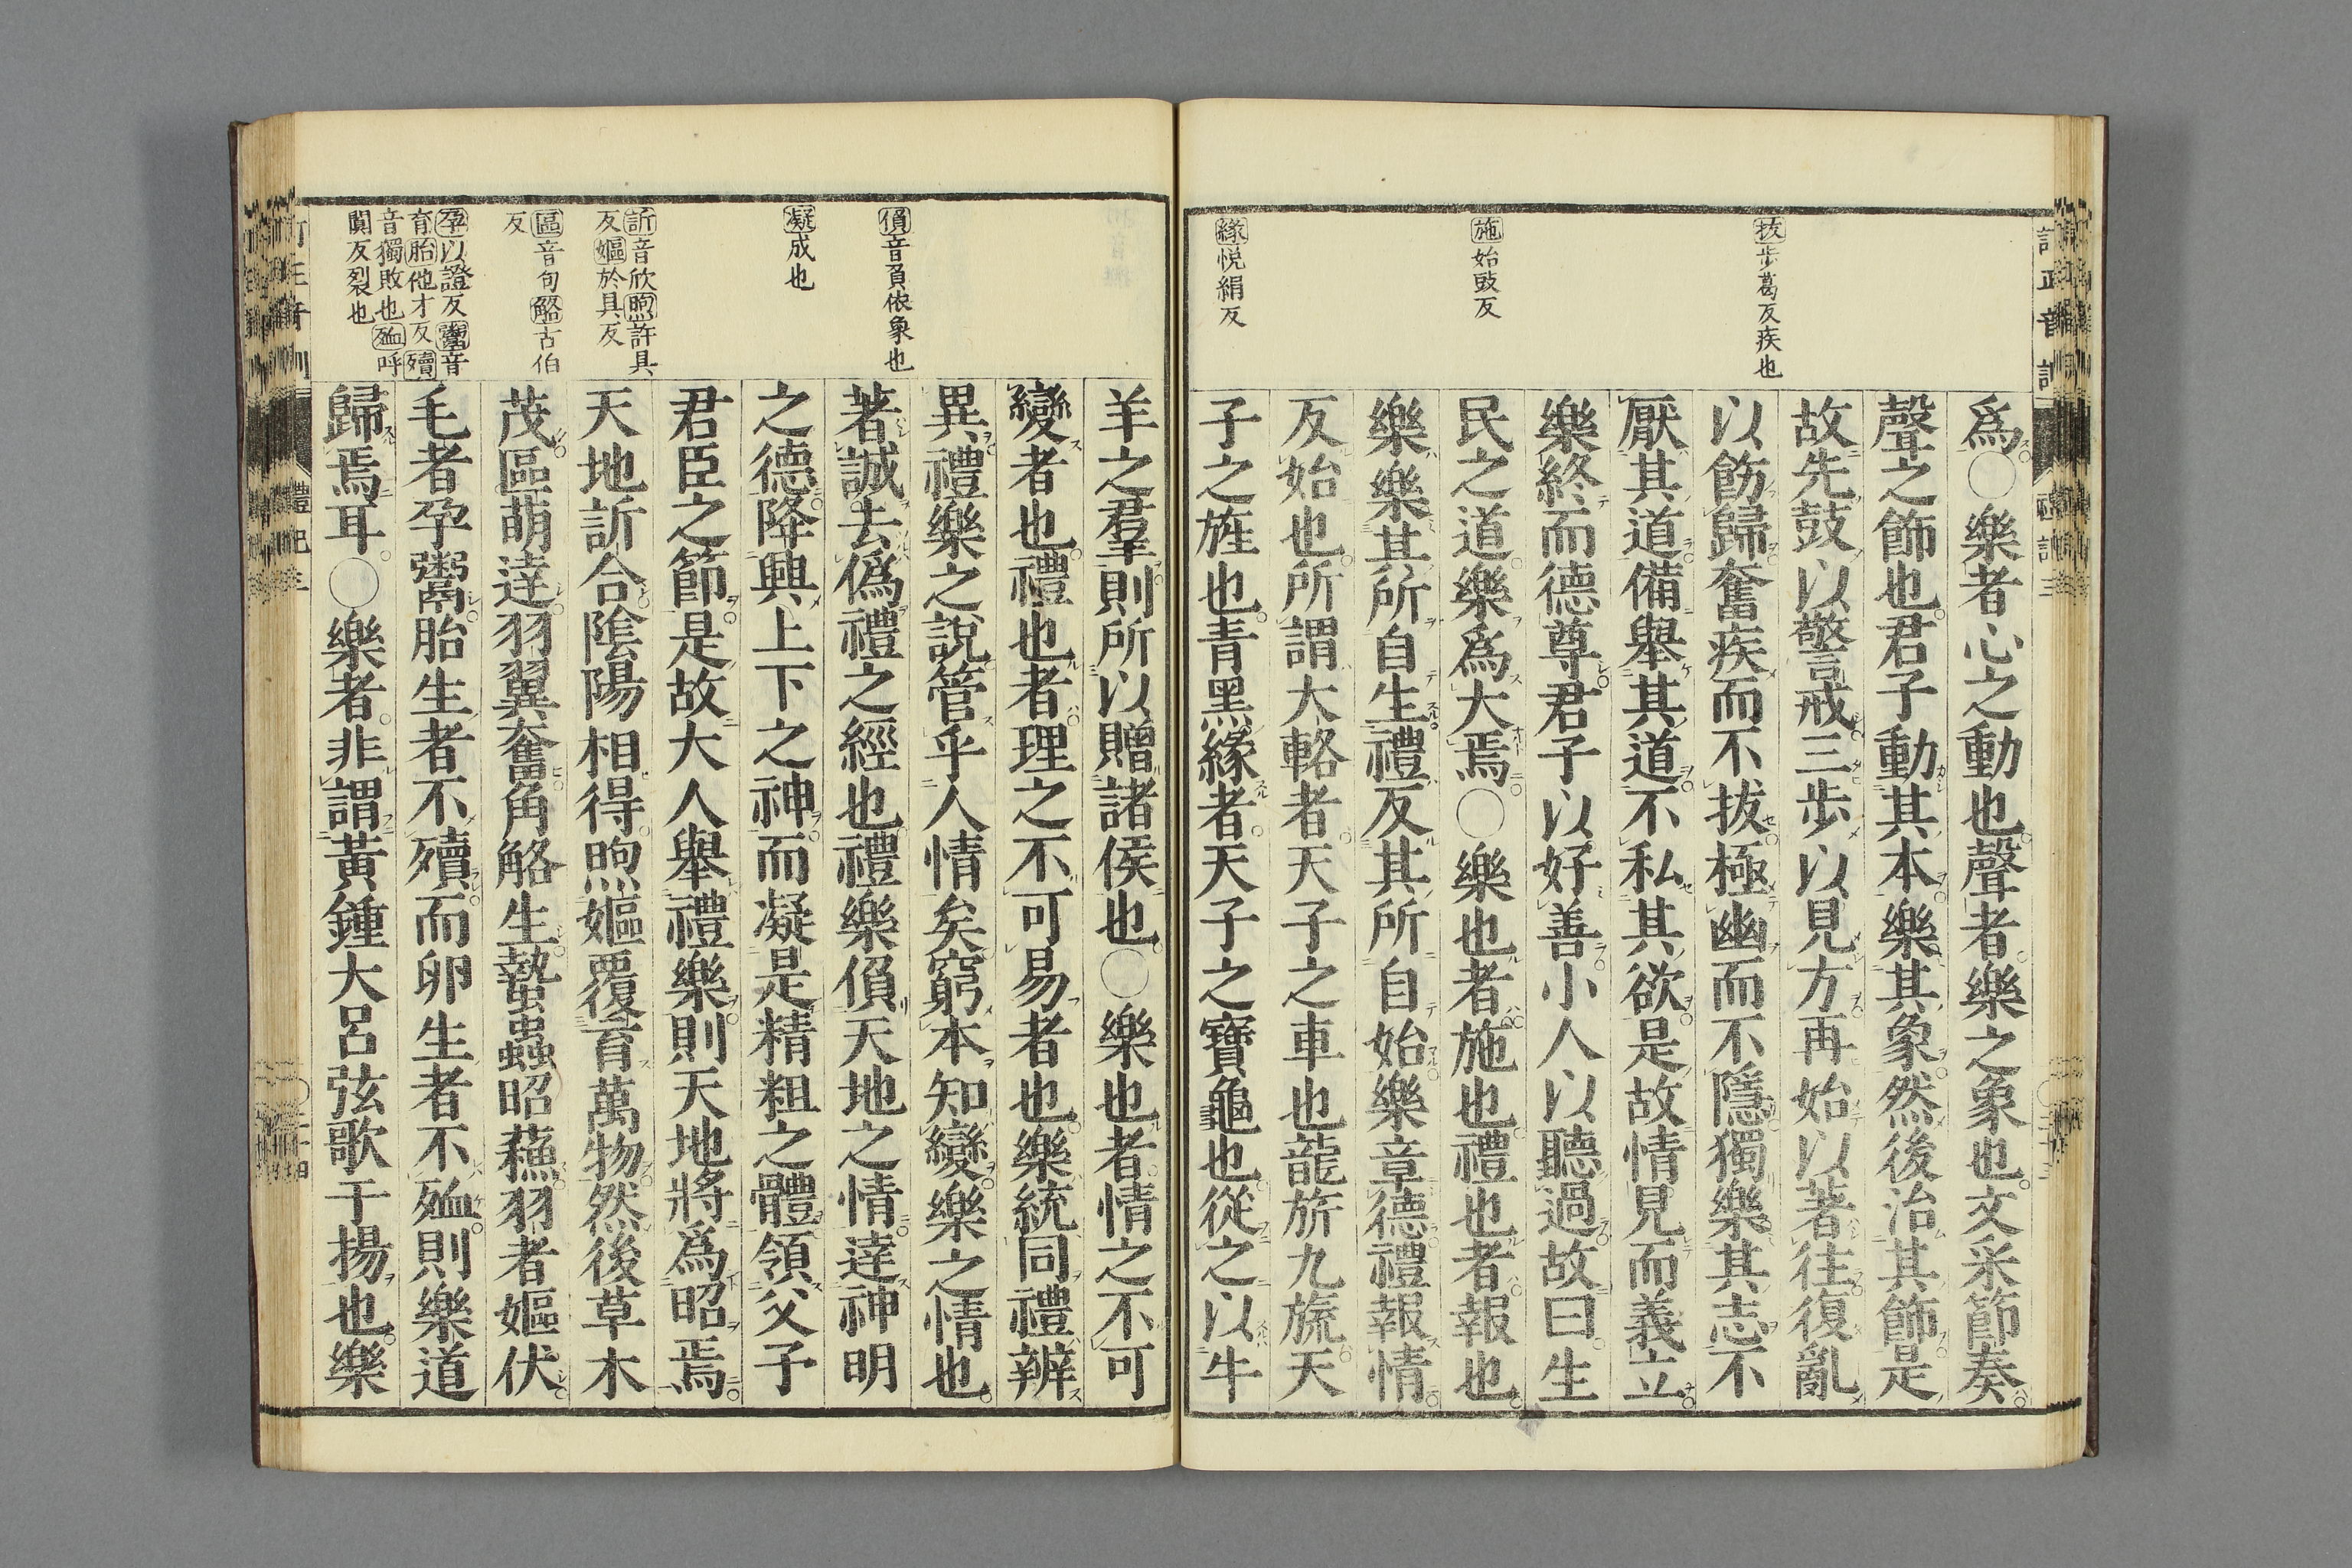 拔步葛反疾也
施始豉反
緣悅絹反
爲○樂者心之動也聲者樂之象也文采節奏
聲之飾也君子動其本樂其象然後治其飾是
故先鼓以警戒三步以見方再始以著往復亂
以飭歸奮疾而不拔極幽而不隱獨樂其志不
厭其道備舉其道不私其欲是故情見而義立
樂終而德尊君子以好善小人以聽過故曰生
民之道樂爲大焉○樂也者施也禮也者報也
樂樂其所自生禮反其所自始樂章德禮報情
反始也所謂大輅者天子之車也龍旂九旒天
子之旌也青黑緣者天子之寶龜也從之以牛
偩音負依象也
凝成也
訢音欣煦許具
反嫗於具反
區音句觡古伯
反
孕以證反鬻音
育胎他才反殰
音獨敗也殈呼
闃反裂也
羊之羣則所以贈諸侯也○樂也者情之不可
變者也禮也者理之不可易者也樂統同禮辨
異禮樂之說管乎人情矣窮本知變樂之情也
著誠去僞禮之經也禮樂偩天地之情達神明
之德降興上下之神而凝是精粗之體領父子
君臣之節是故大人舉禮樂則天地將爲昭焉
天地訢合陰陽相得煦嫗覆育萬物然後草木
茂區萌達羽翼奮角觡生蟄蟲昭蘇羽者嫗伏
毛者孕鬻胎生者不殰而卵生者不殈則樂道
歸焉耳○樂者非謂黃鍾大呂弦歌干揚也樂